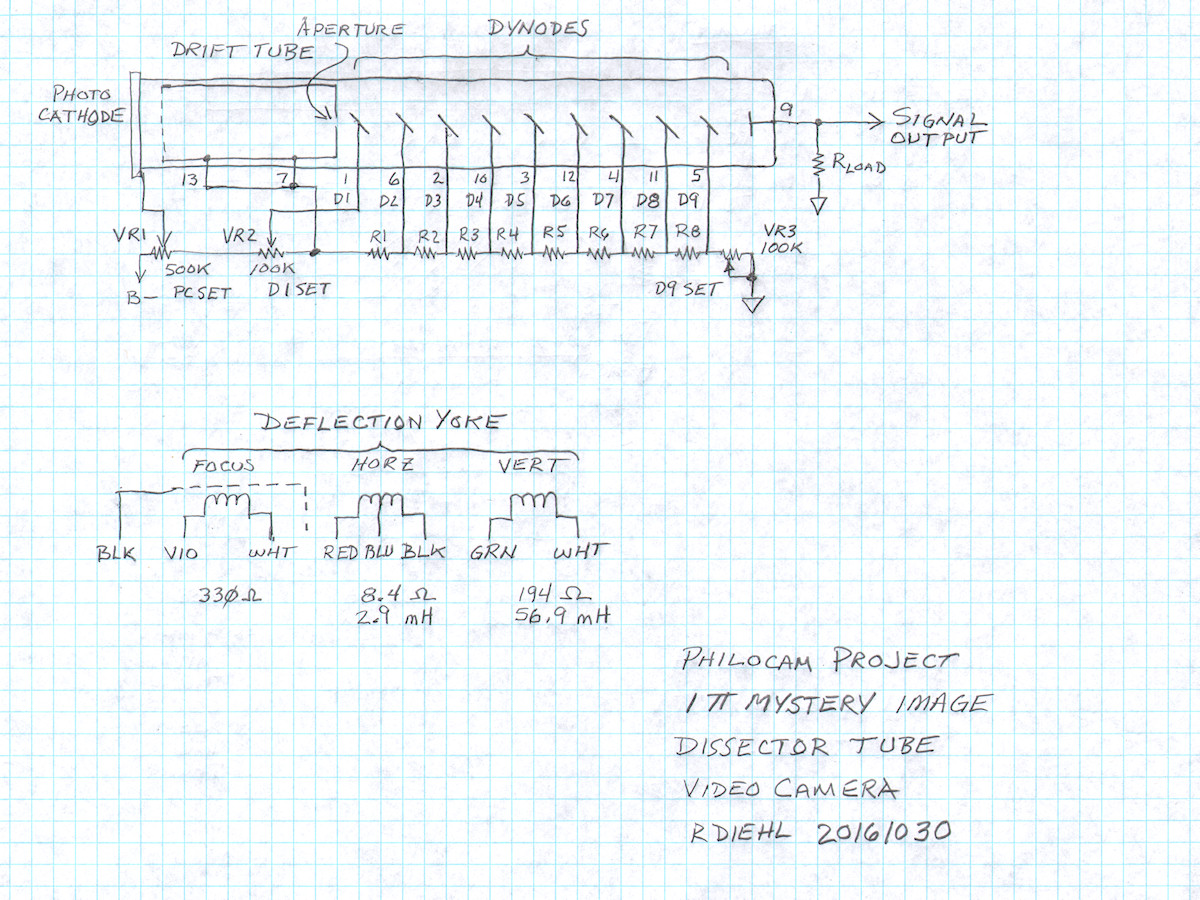 APERTURE
DYNODES
DRIFT TUBE
PHOTO
CATHODE
9
SIGNAL
OUTPUT
RLOAD
13 7 1 6 2 10 3 12 4 11 5
D1 D2 D3 D4 D5 D6 D7 D8 D9
VR1 VR2 R1 R2 R3 R4 R5 R6 R7 R8 VR3
100K
500K 100K
B- PC SET D1 SET D9 SET
DEFLECTION YOKE
FOCUS HORZ VERT
BLK VIO WHT RED BLU BLK GRN WHT
330Ω 8.4 Ω 194 Ω
2.9 mH 56.9 mH
PHILOCAM PROJECT
1π MYSTERY IMAGE
DISSECTOR TUBE
VIDEO CAMERA
R DIEHL 20161030